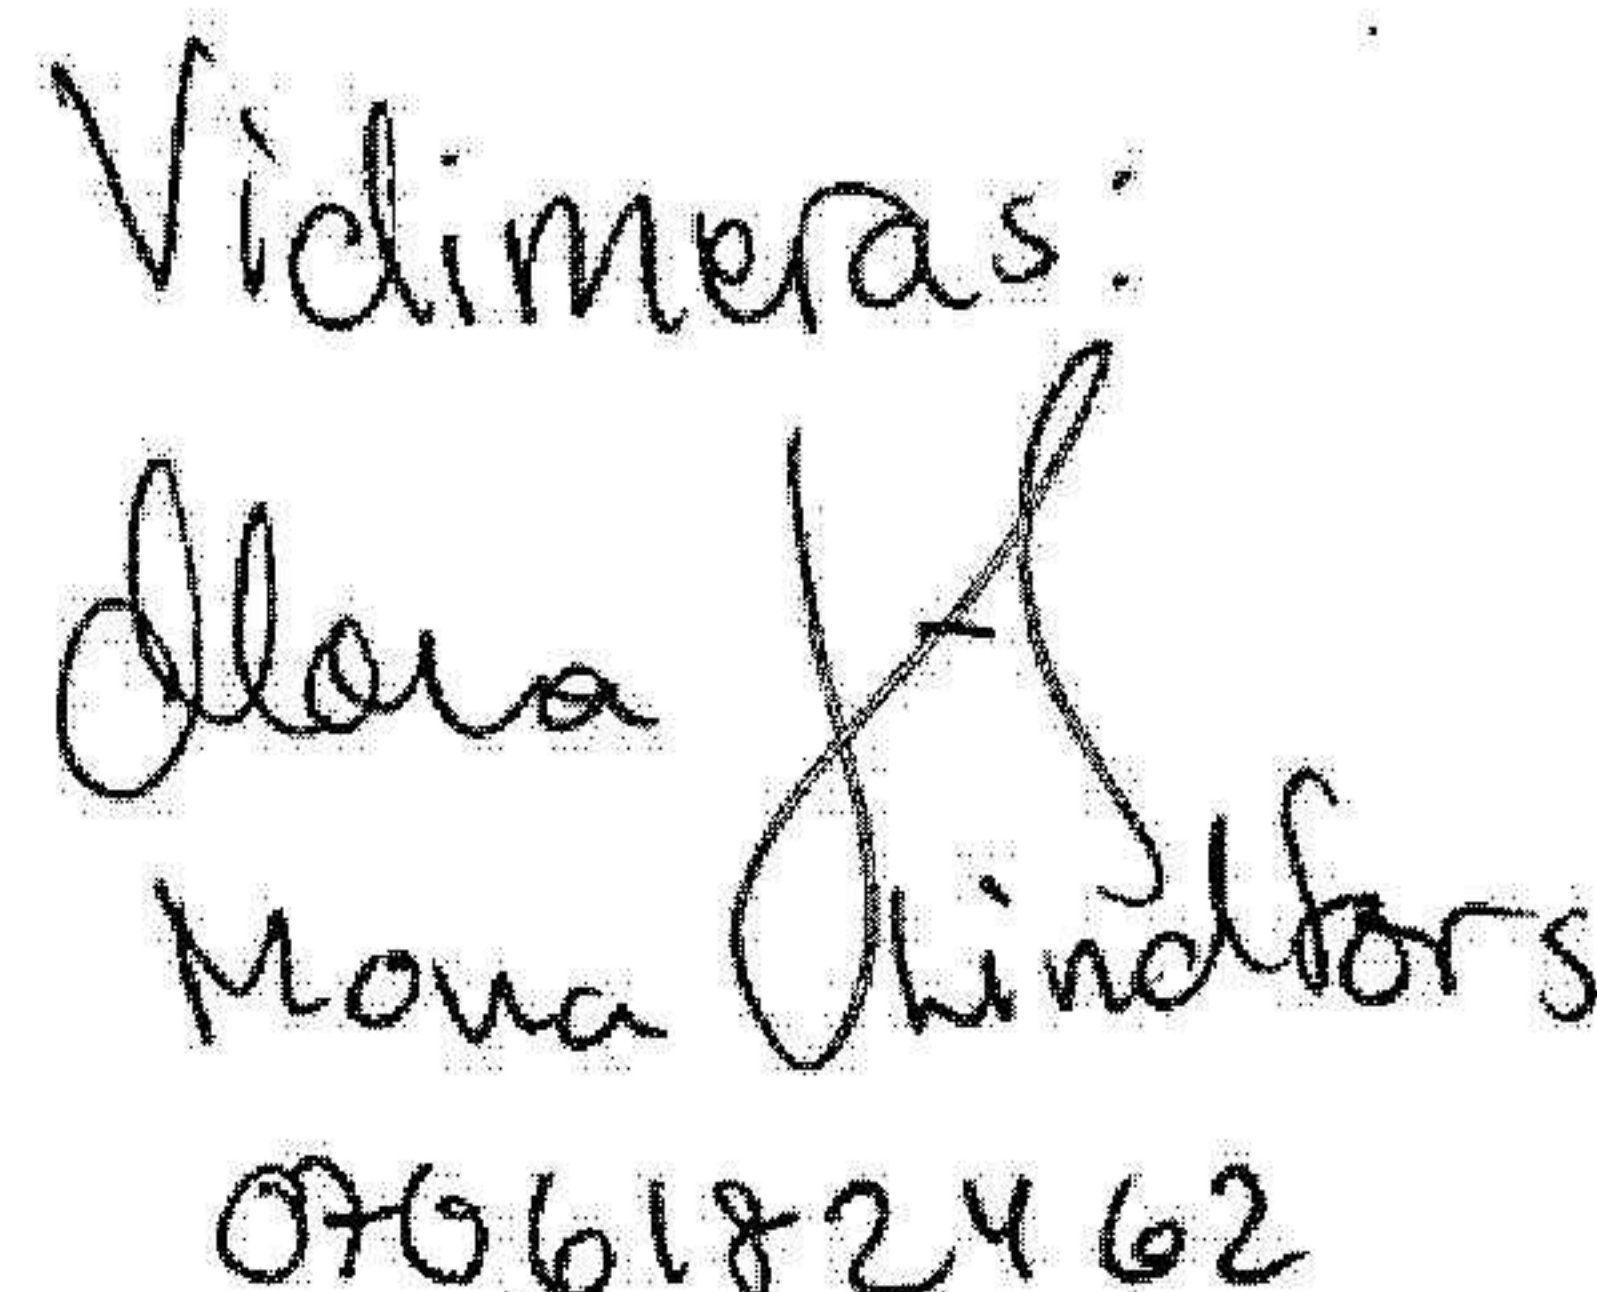 Vidimeras:
Mona
Mona Lindfors
0766182462